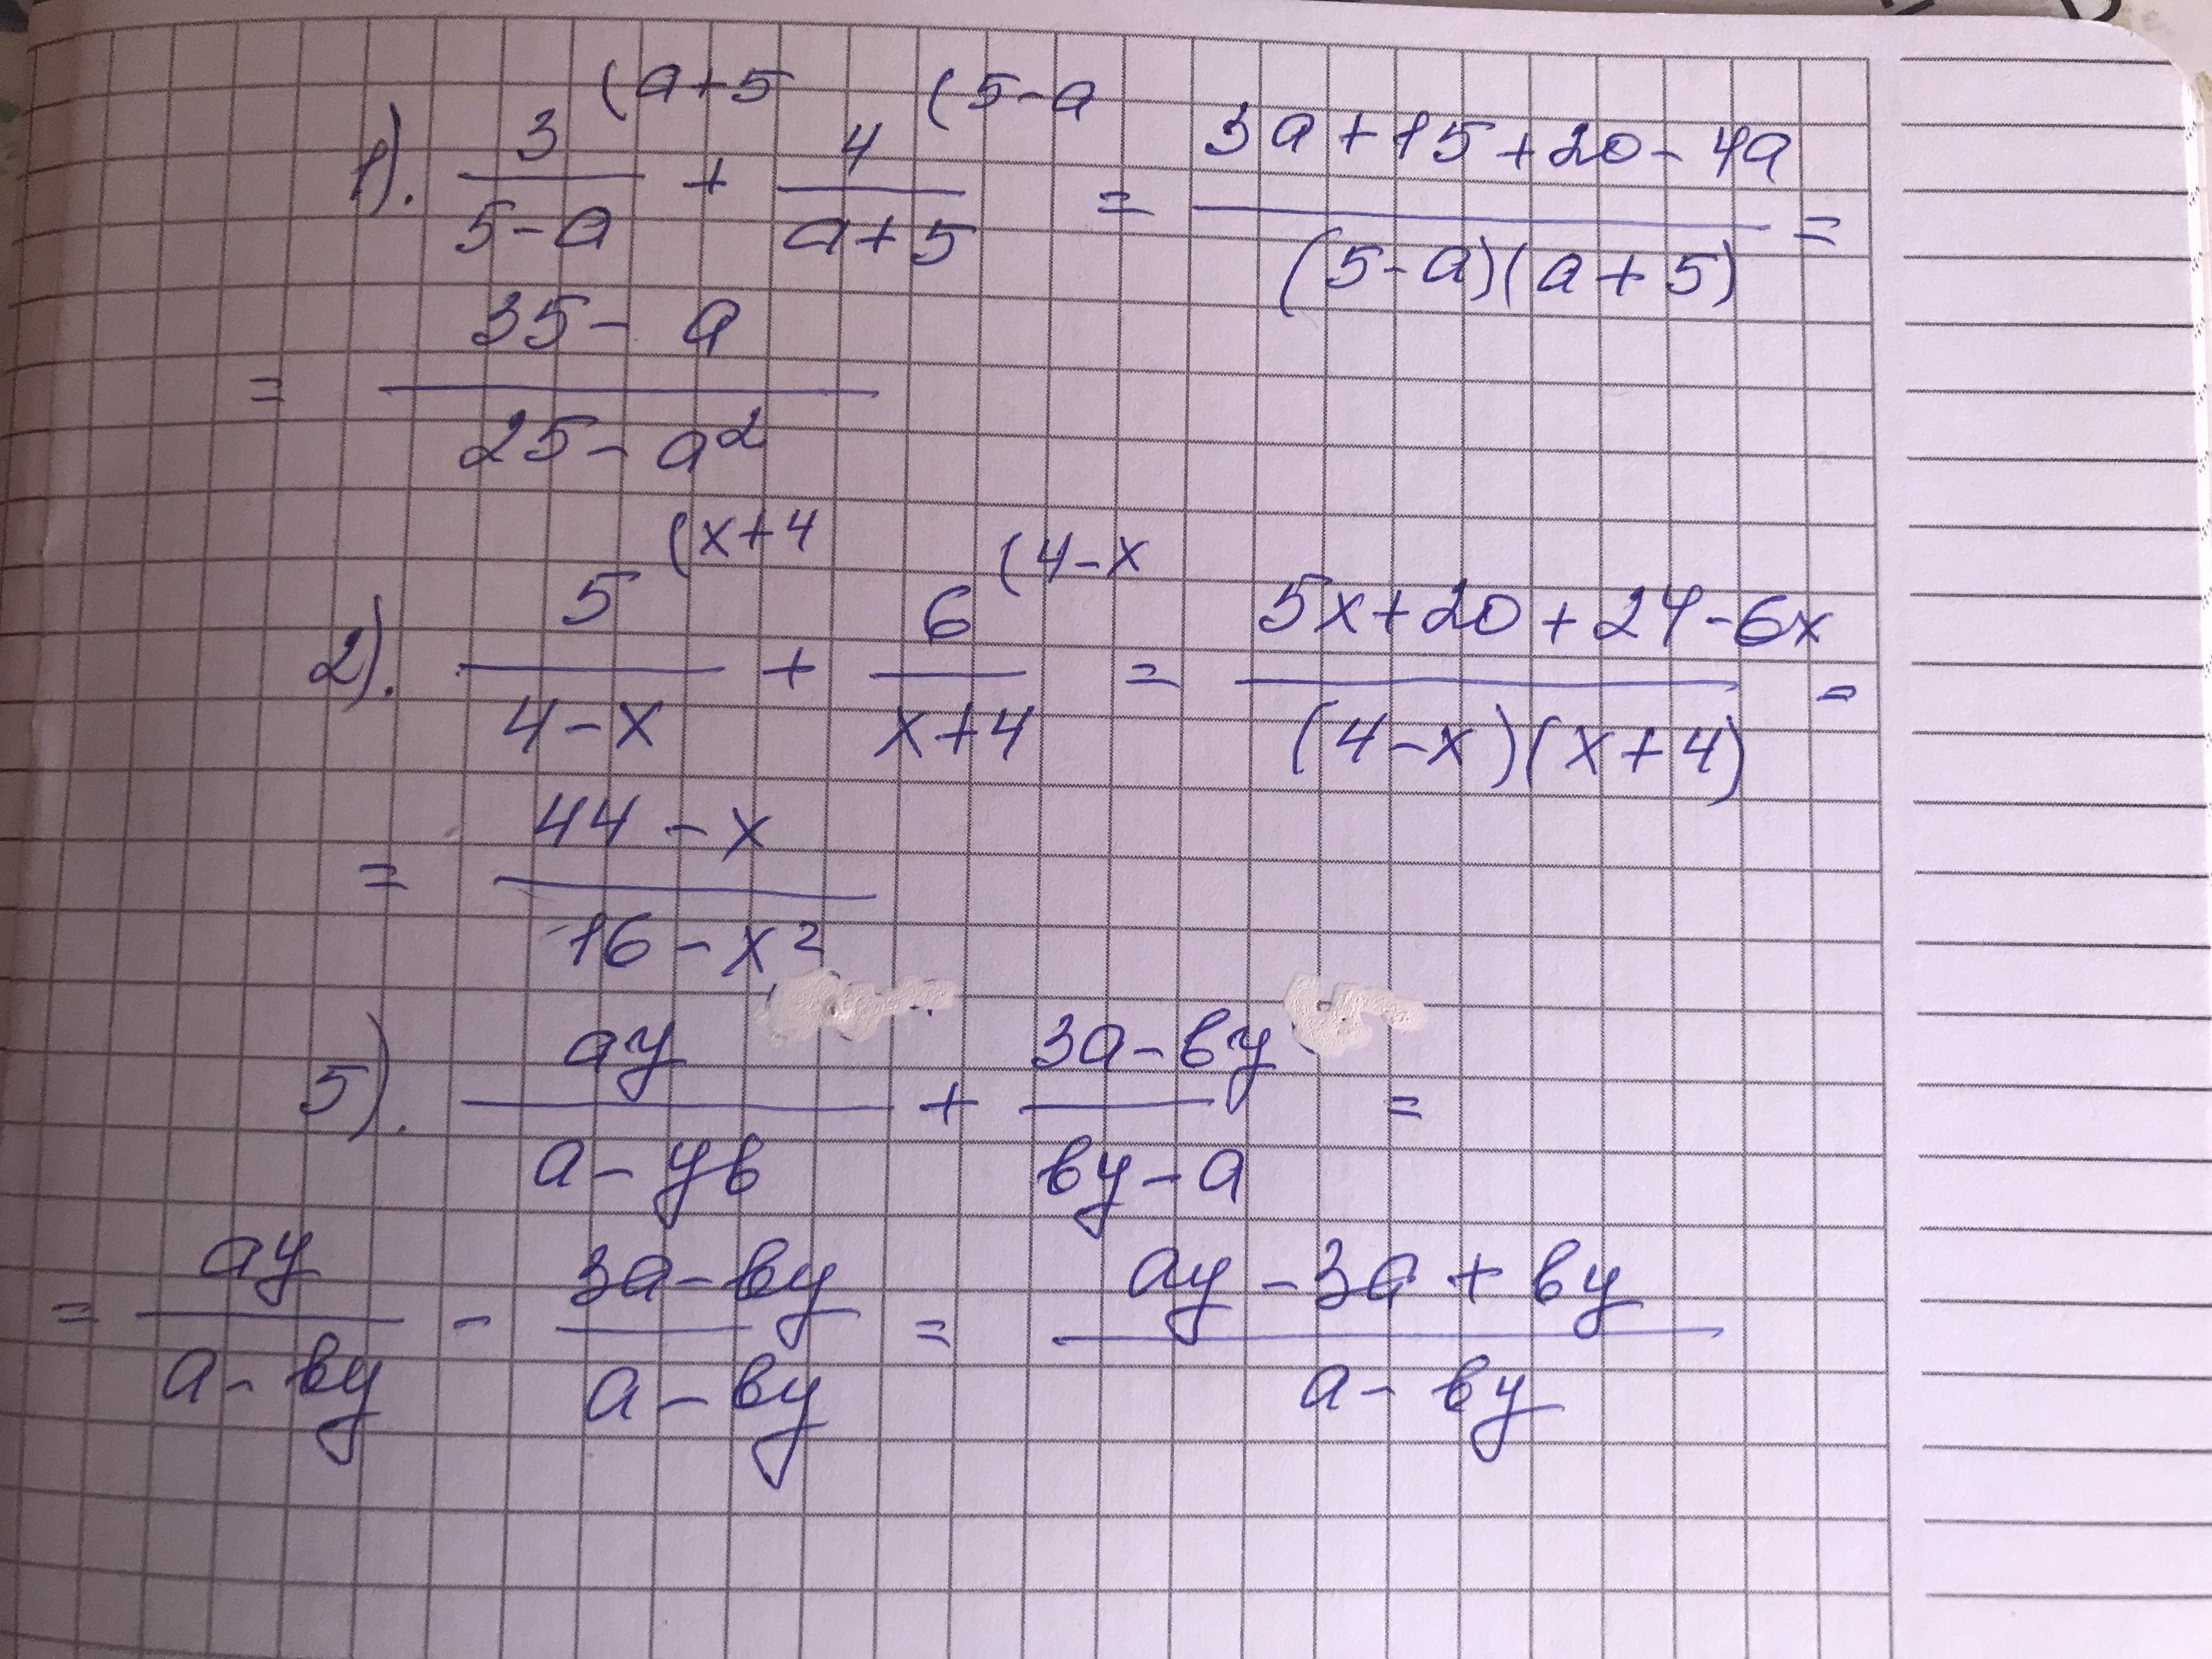 1). 3/(5-a) (a+5 + 4/(a+5) (5-a = (3a+15+20-4a)/((5-a)(a+5)) =
= (35-a)/(25-a²)
2). 5/(4-x) (x+4 + 6/(x+4) (4-x = (5x+20+24-6x)/((4-x)(x+4)) =
= (44-x)/(16-x²)
5). ay/(a-yв) + (3a-вy)/(вy-a) =
= ay/(a-вy) - (3a-вy)/(a-вy) = (ay-3a+вy)/(a-вy)